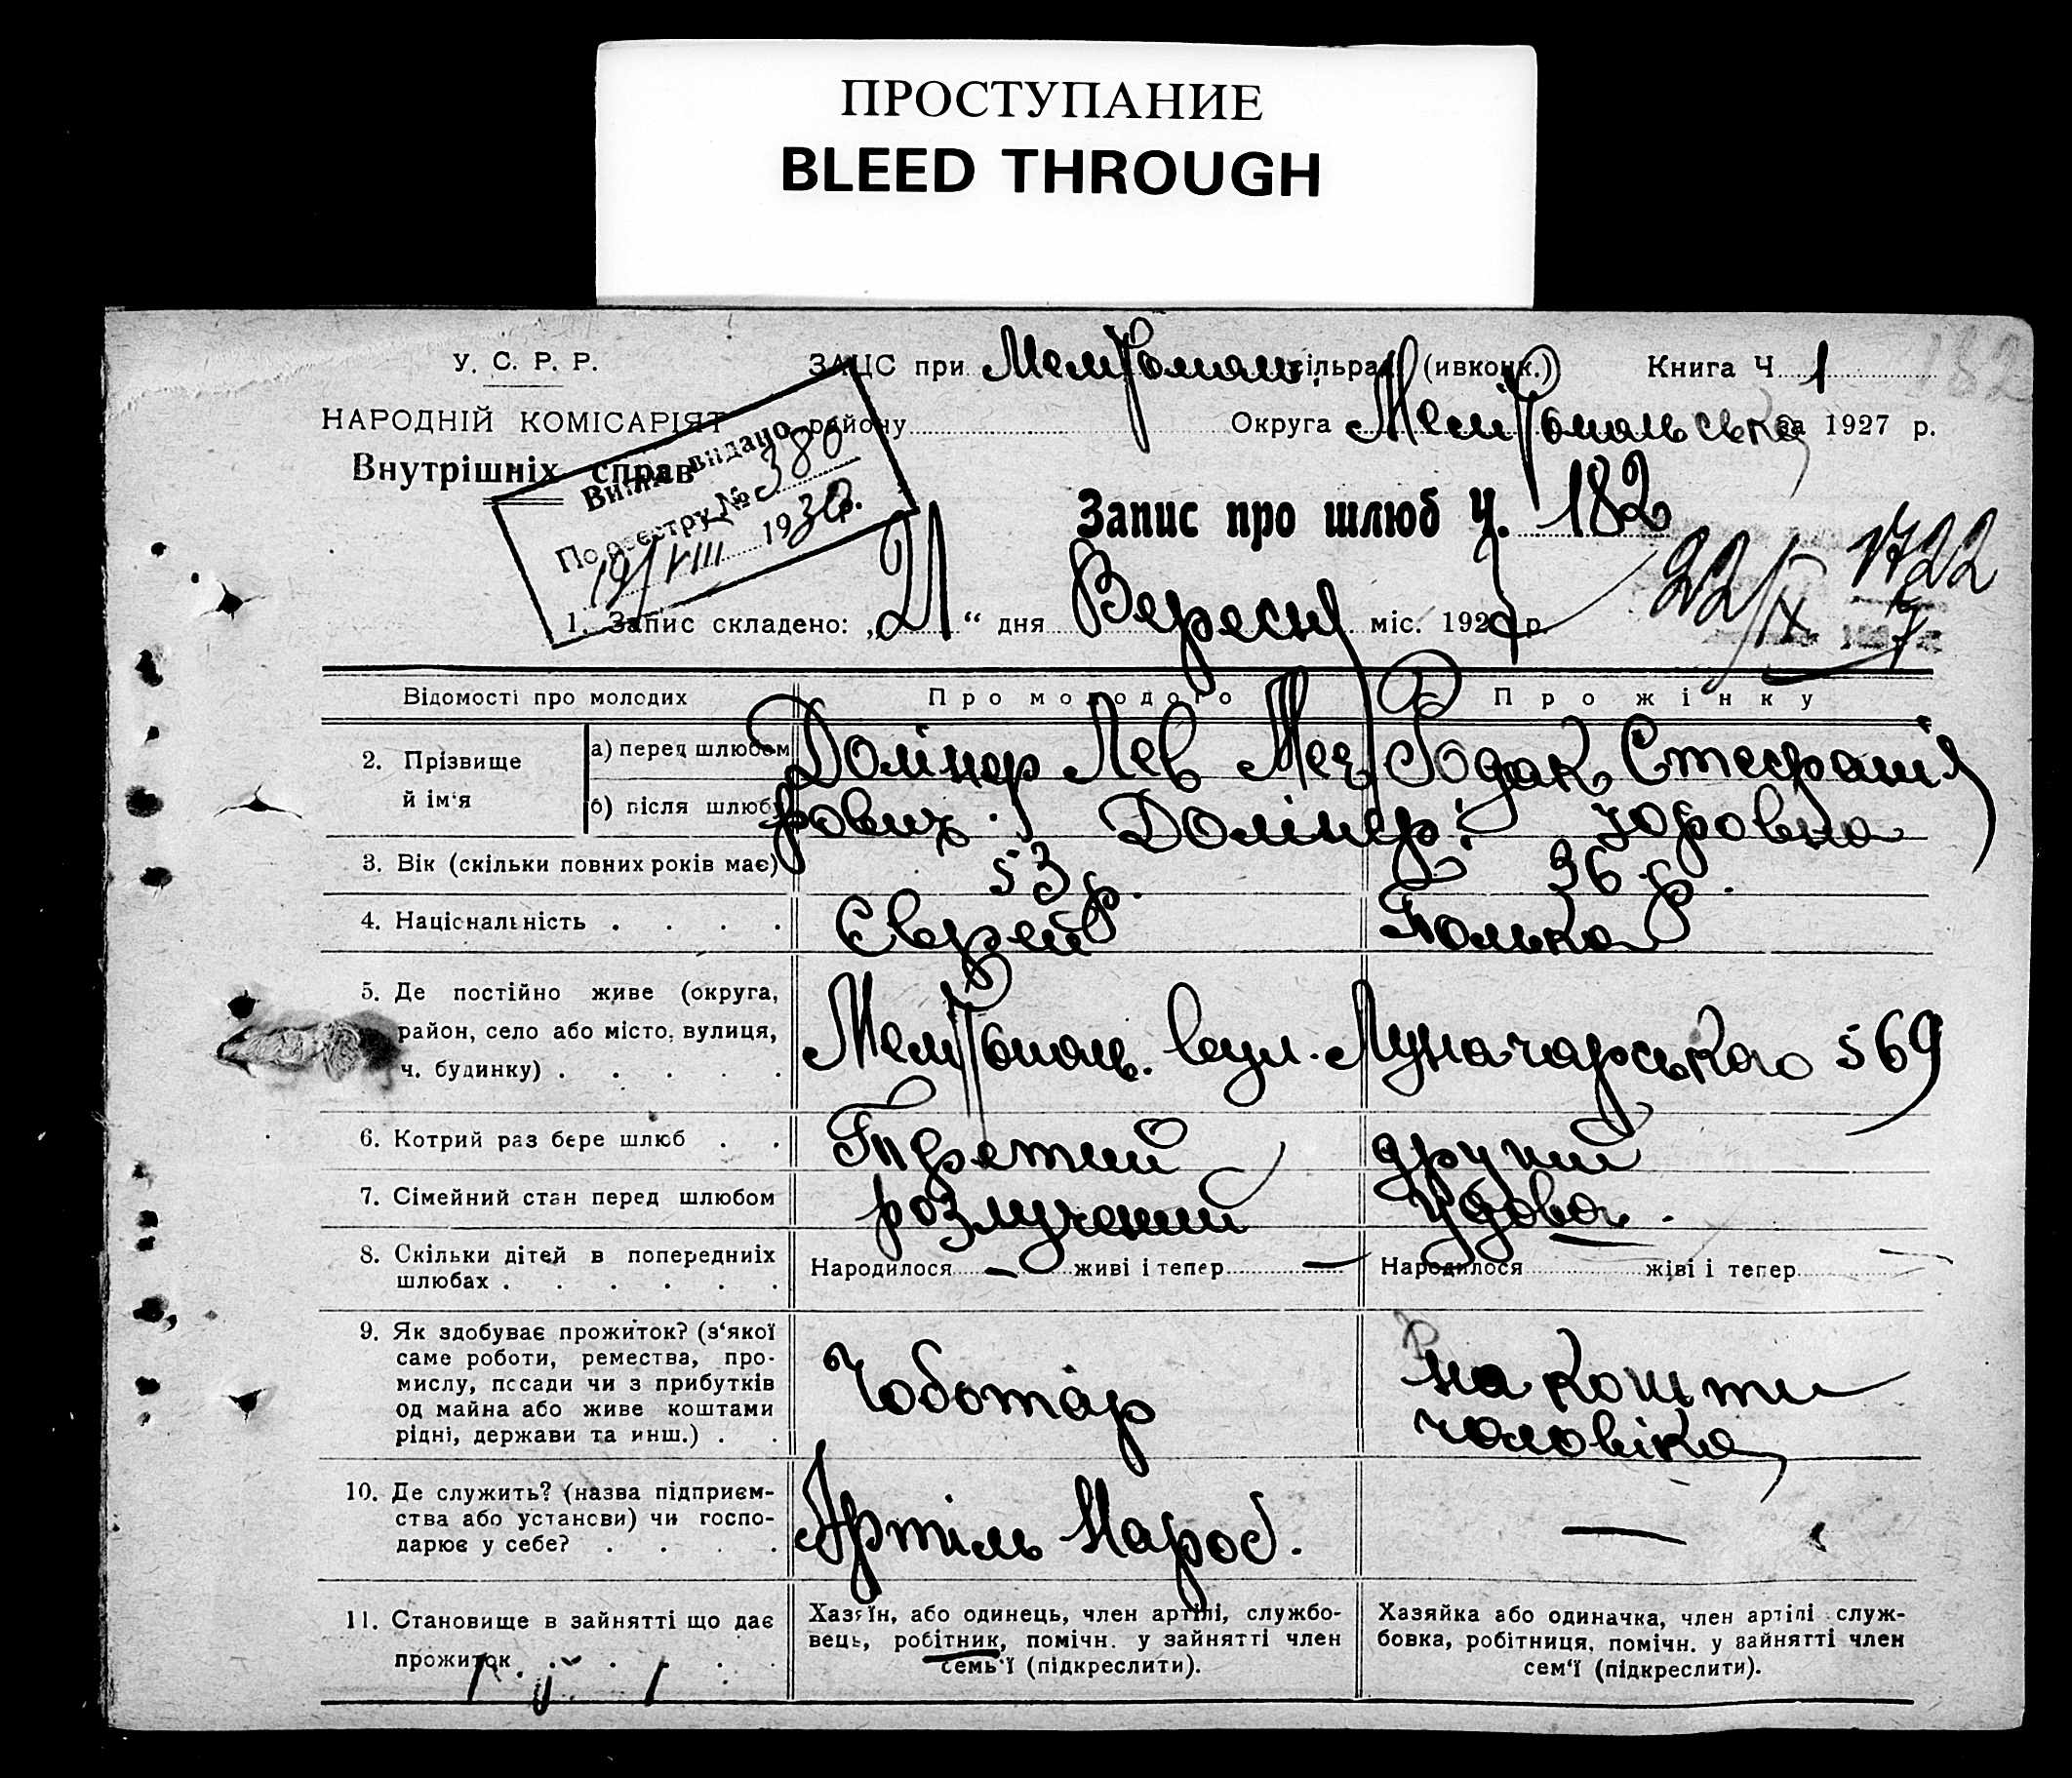 ПРОСТУПАНИЕ
BLEED THROUGH
У. С. Р. Р.
ЗАЦС при Меліtополь. сільрад. (ивконк.) Книга Ч 1
НАРОДНІЙ КОМІСАРІЯТ
району Округа Меліtопольська за 1927 р.
Внутрішніх справ
Витяг видано
По реєстру № 380
19/VIII 1930.
Запис про шлюб Ч. 182
22/IX 1722
7
1. Запис складено: „21“ дня Вересня міс. 1927 р.
Відомості про молодих
Про молодого
Про жінку
2. Прізвище й ім'я
а) перед шлюбом
Долінер Лев Меє
Годак Стефанія
б) після шлюбу
рович. Долінер: Юровна
3. Вік (скільки повних років має)
53 р.
36 р.
4. Національність . . . .
Єврей
Полька
5. Де постійно живе (округа,
район, село або місто, вулиця,
ч. будинку) . . . . .
Меліtополь. вул. Луначарського 569
6. Котрий раз бере шлюб . .
Третий
другий
7. Сімейний стан перед шлюбом
розлучений
удова.
8. Скільки дітей в попередніх
шлюбах . . . . . .
Народилося — живі і тепер —
Народилося живі і тепер
9. Як здобуває прожиток? (з'якої
саме роботи, ремества, про-
мислу, посади чи з прибутків
од майна або живе коштами
рідні, держави та инш.) . .
Чоботар
на кошти
чоловіка
10. Де служить? (назва підприєм-
ства або установи) чи госпо-
дарює у себе? . . . .
Артіль Нароб.
—
11. Становище в зайнятті що дає
прожиток . . . . .
Хазяїн, або одинець, член артілі, службо-
вець, робітник, помічн. у зайнятті член
семь'ї (підкреслити).
Хазяйка або одиначка, член артілі служ-
бовка, робітниця, помічн. у зайнятті член
сем'ї (підкреслити).